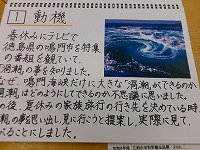 1 動機
春休みにテレビで
徳島県の鳴門市を特集
の番組を観て、
「渦潮」の事を知りました。
なぜ、鳴門海峡だけに大きな「渦潮」ができるのか
渦潮」はどのようにしてできるのか不思議に思いました。
の後、夏休みの家族旅行の行き先を決めている時
渦潮」の事を思い出し見に行こうと提案し、実際に見て、
べることにしました。